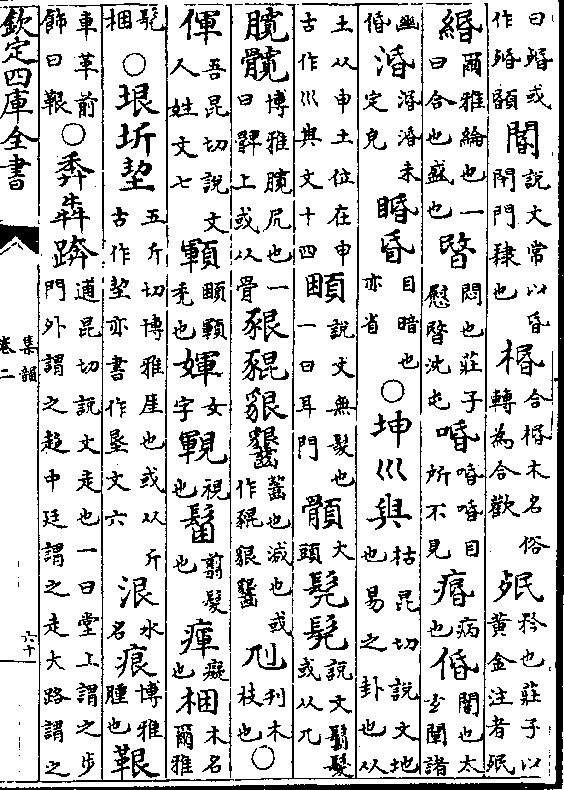 曰㛰或作婚頟閽說文常以昏閉門隸也棔合棔木名俗轉為合歡殙矜也莊子以黃金注者殙
緡爾雅綸也一曰合也盛也暋悶也莊子慰暋沈屯㖧㖧㖧目所不見痻病也惛闇也太𤣥闇諸
幽惛涽涽涽未定皃睧昏目暗也亦省○坤巛𠀬枯昆切說文地也易之卦也从
土从申土位在申古作巛𠀬文十四頣說文無髮也一曰耳門顝大頭髡髠說文鬀髮或从兀
臗髖博雅臗尻也一曰髀上或从骨豤貇齧也減也或作刊木枝也○
俒吾昆切說文人姓文七顐秃也女字視也翦髮也癡也梱木名爾雅
髡梱○垠圻五斤切博雅厓也或从斤古作亦書作垦文六泿水名痕博雅腫也鞎
車革前飾曰鞎○犇逋昆切說文走也一曰堂上謂之步門外謂之趨中廷謂之走大路謂之
欽定四庫全書
集韻
卷二
六十